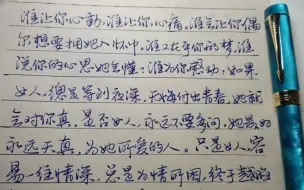 谁让你心动,谁让你心痛,谁会让你偶
尔想要拥她入怀中,谁又在乎你的梦,谁
说你的心思她会懂,谁为你感动,如果
女人,总是等到夜深,无悔付出青春,她就
会对你真,是否女人,永远不要多问,她最好
永远天真,为她所爱的人,只是女人,容
易一往情深,总是为情所困,终于越陷